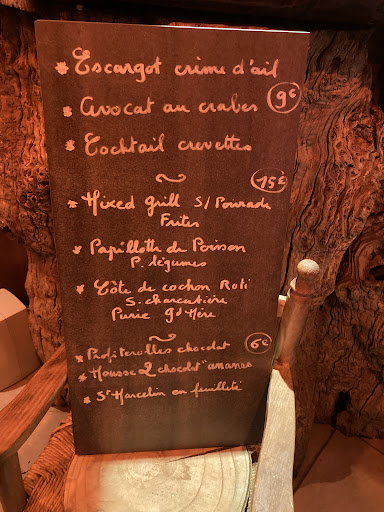 * Escargot crème d'ail
* Avocat au crabes 9€
* Cocktail crevettes
15€
* Mixed grill S/Pourade
Frites
* Papillotte de Poisson
P. légumes
* Côte de cochon Roti
S. charcutière
Purée gd Mère
* Profiterolles chocolat 6€
* Mousse 2 chocolat ananas
* St Marcelin en feuilleté